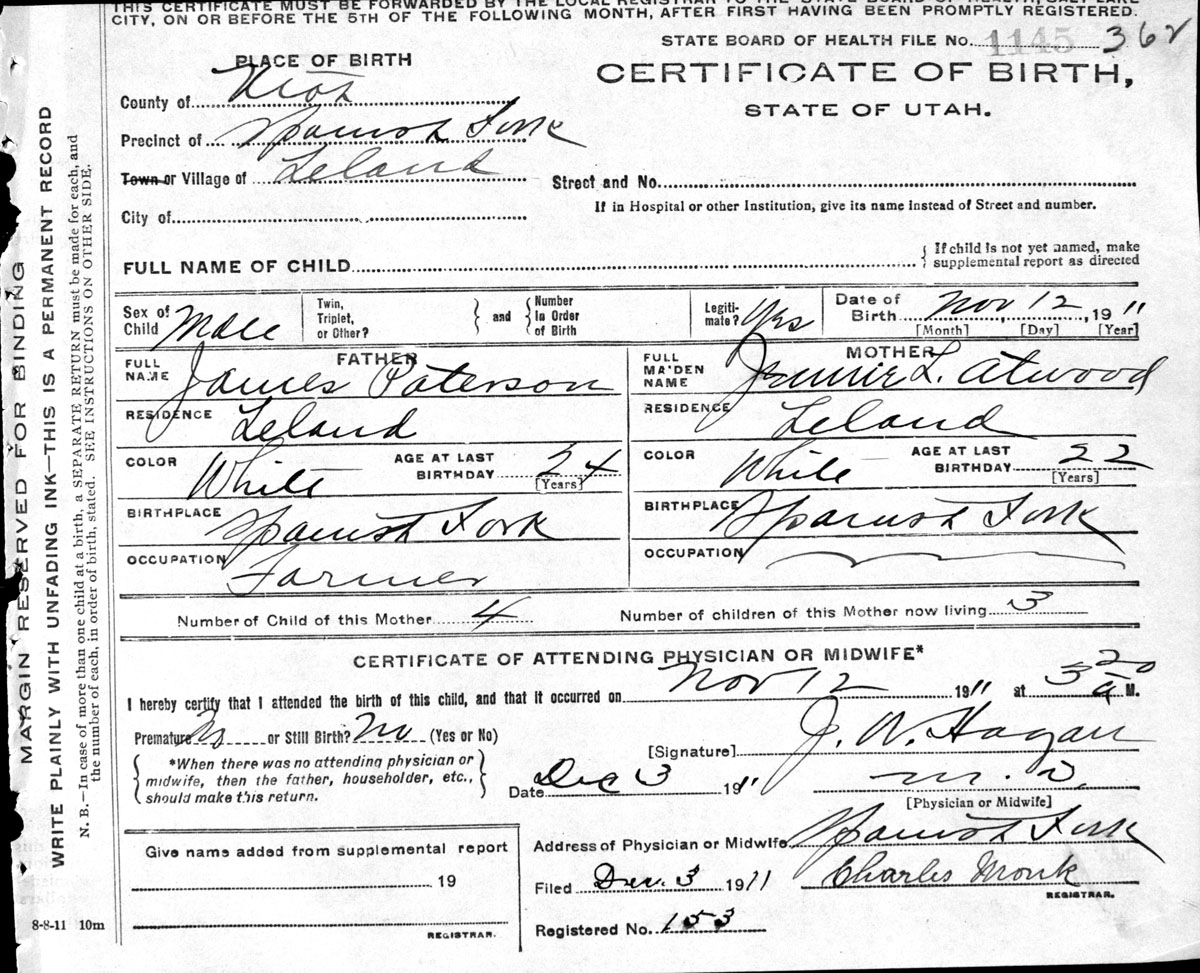 THIS CERTIFICATE MUST BE FORWARDED BY THE LOCAL REGISTRAR TO THE STATE BOARD OF HEALTH, SALT LAKE
CITY, ON OR BEFORE THE 5TH OF THE FOLLOWING MONTH, AFTER FIRST HAVING BEEN PROMPTLY REGISTERED.
STATE BOARD OF HEALTH FILE No. 1145 362
PLACE OF BIRTH
CERTIFICATE OF BIRTH,
STATE OF UTAH.
County of Utah
Precinct of Spanish Fork
Town or Village of Leland
Street and No.
City of
If in Hospital or other Institution, give its name instead of Street and number.
FULL NAME OF CHILD
If child is not yet named, make
supplemental report as directed
Sex of Child Male
Twin, Triplet, or Other?
and
Number In Order of Birth
Legiti-mate? Yes
Date of Birth Nov 12, 1911
[Month] [Day] [Year]
FATHER
FULL NAME James Paterson
RESIDENCE Leland
COLOR White AGE AT LAST BIRTHDAY 24
[Years]
BIRTHPLACE Spanish Fork
OCCUPATION Farmer
MOTHER
FULL MA'DEN NAME L. Atwood
RESIDENCE Leland
COLOR White AGE AT LAST BIRTHDAY 22
[Years]
BIRTHPLACE Spanish Fork
OCCUPATION
Number of Child of this Mother 4 Number of children of this Mother now living 3
CERTIFICATE OF ATTENDING PHYSICIAN OR MIDWIFE*
I hereby certify that I attended the birth of this child, and that it occurred on Nov 12 1911 at 3 20 a M.
Premature No or Still Birth? No (Yes or No)
[Signature] J. W. Hagan
*When there was no attending physician or
midwife, then the father, householder, etc.,
should make this return.
Date Dec 3 1911 M. D.
[Physician or Midwife]
Give name added from supplemental report
19
REGISTRAR.
Address of Physician or Midwife Spanish Fork
Filed Dec. 3 1911 Charles Monk
REGISTRAR.
Registered No. 153
8-8-11 10m
MARGIN RESERVED FOR BINDING
WRITE PLAINLY WITH UNFADING INK—THIS IS A PERMANENT RECORD
N. B.—In case of more than one child at a birth, a SEPARATE RETURN must be made for each, and
the number of each, in order of birth, stated. SEE INSTRUCTIONS ON OTHER SIDE.